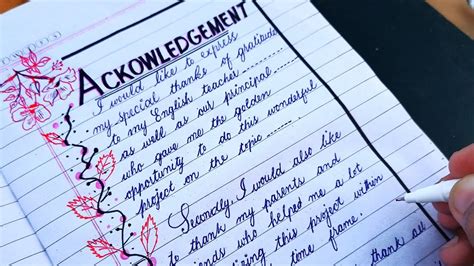 ACKOWLEDGEMENT
I would like to express
my special thanks of gratitude
to my English teacher..........
as well as our principal
who gave me the golden
opportunity to do this wonderful
project on the topic ..........
Secondly, I would also like
to thank my parents and
friends who helped me a lot
this project within
time frame.